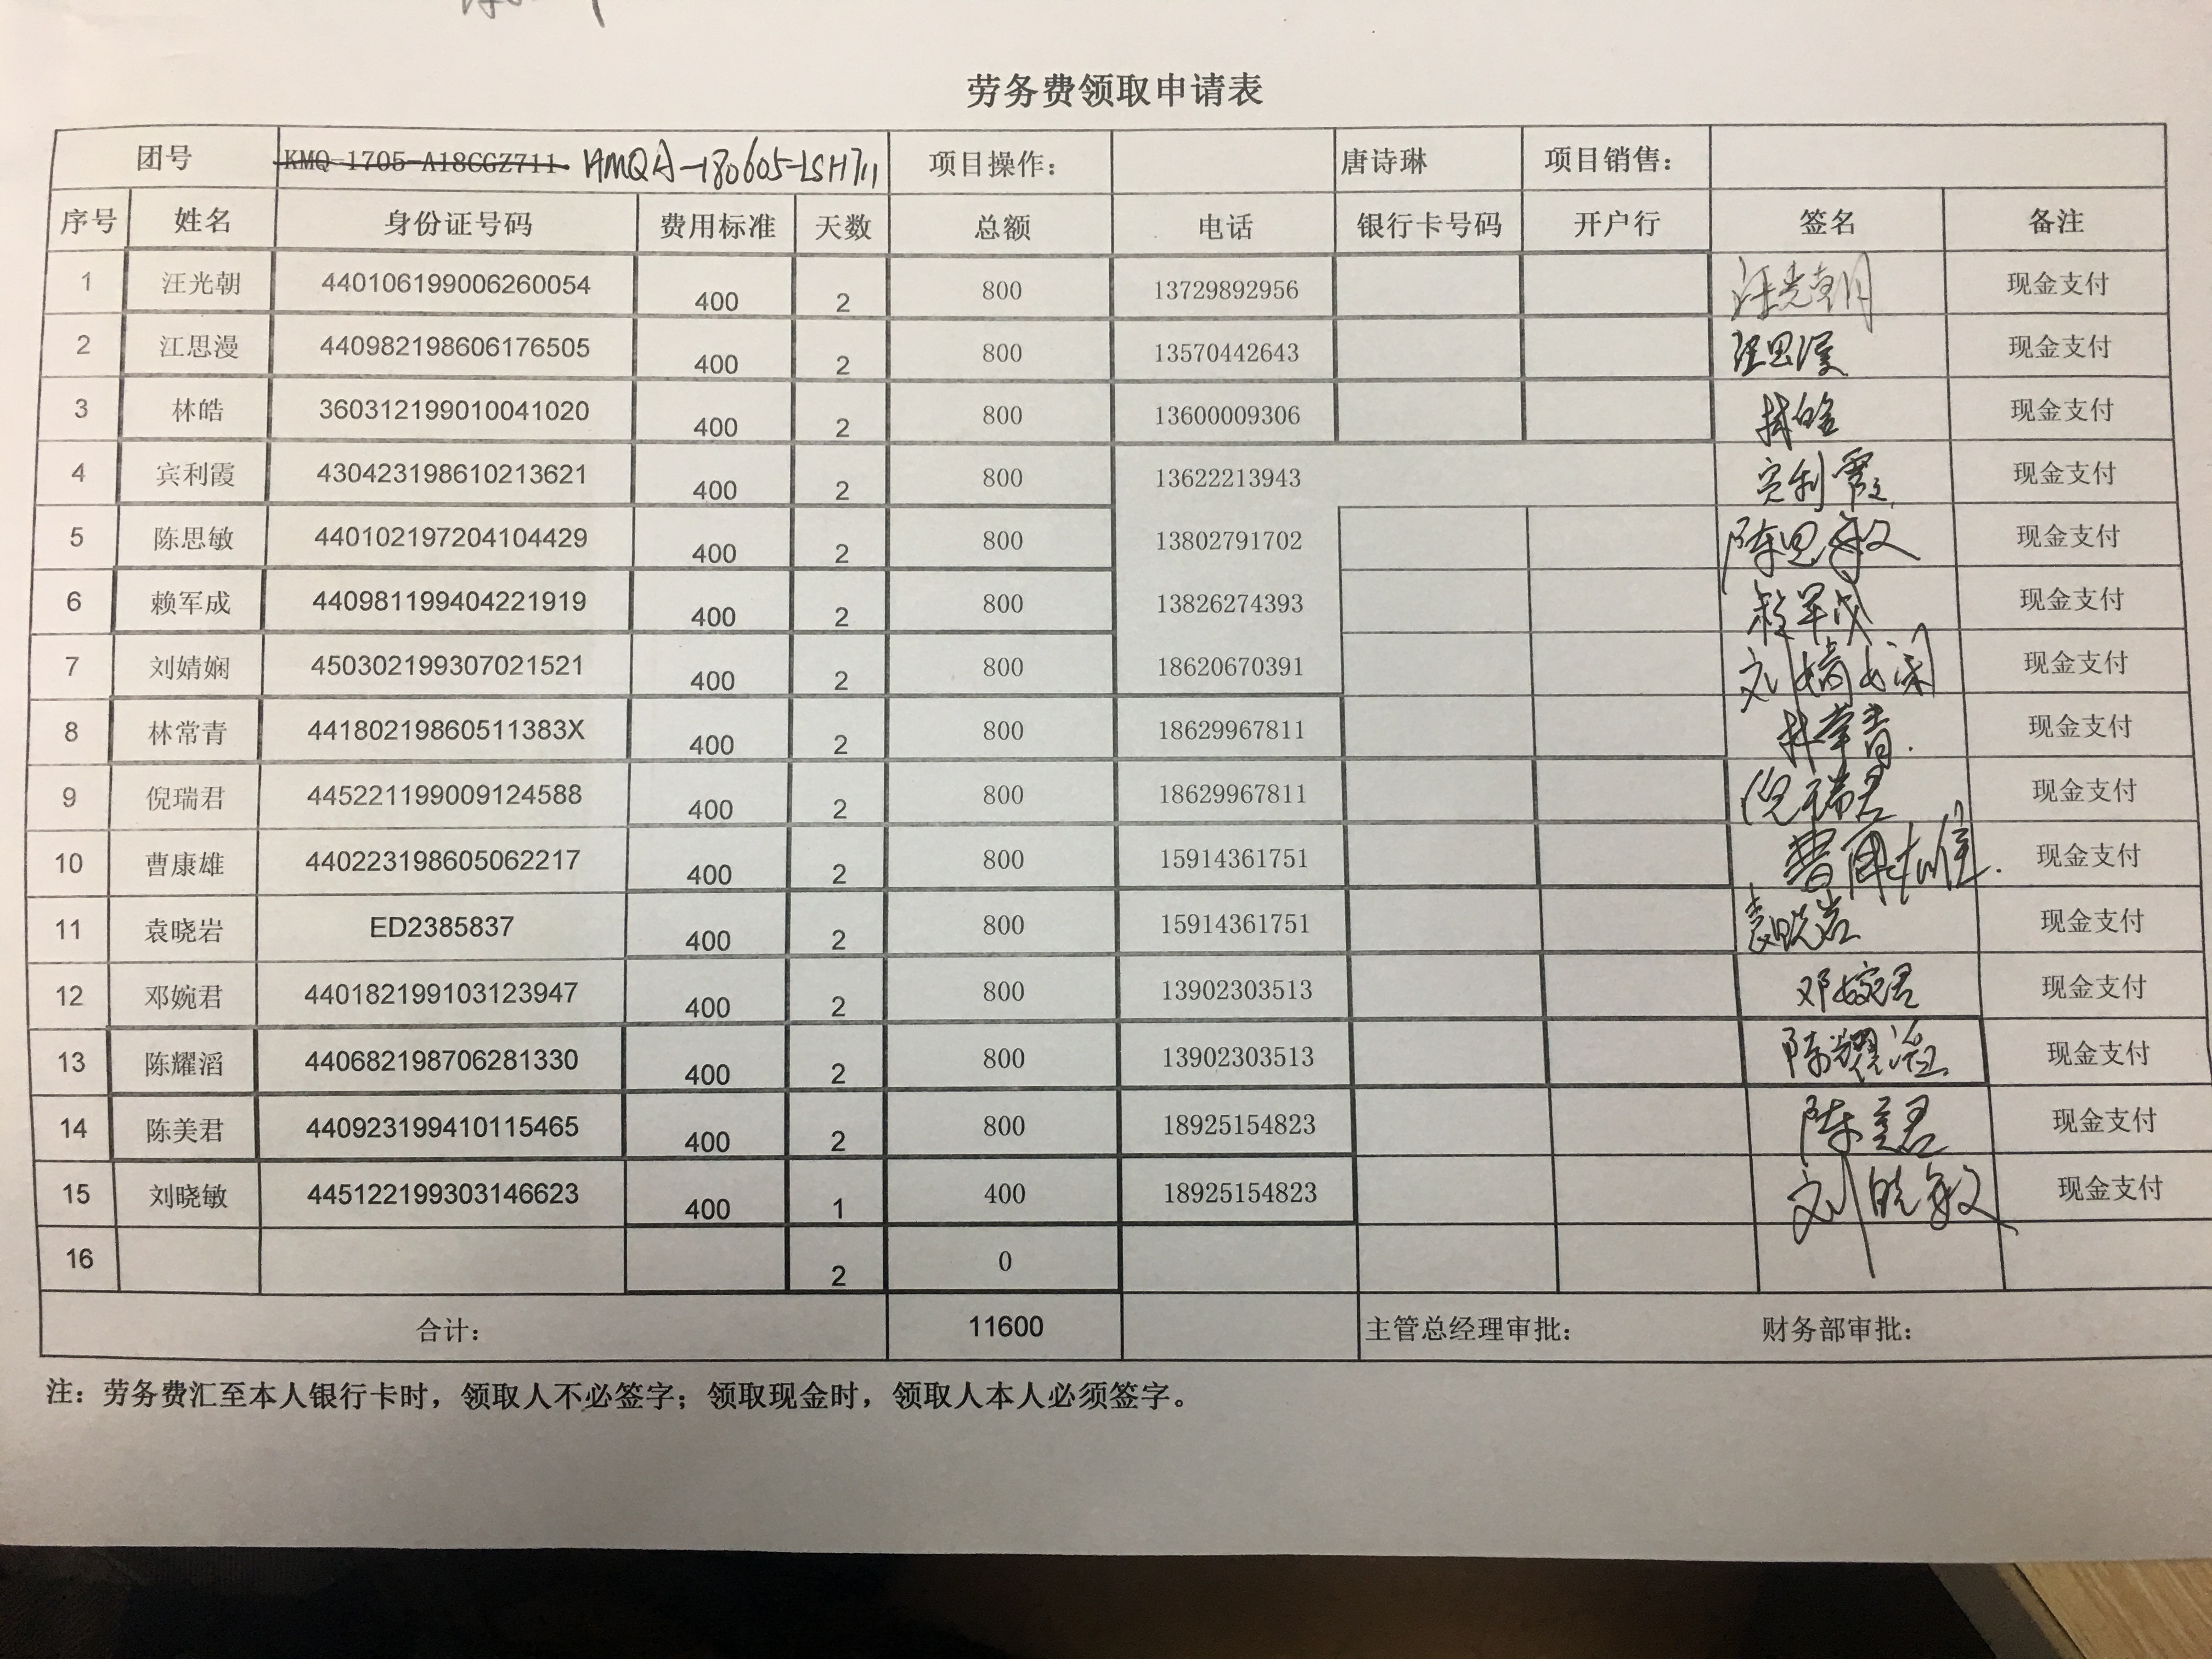 劳务费领取申请表
团号 KMQ-1705-A18CGZ711 HMQA-180605-LSH711 项目操作: 唐诗琳 项目销售:
序号 姓名 身份证号码 费用标准 天数 总额 电话 银行卡号码 开户行 签名 备注
1 汪光朝 440106199006260054 400 2 800 13729892956 汪光朝 现金支付
2 江思漫 440982198606176505 400 2 800 13570442643 江思漫 现金支付
3 林皓 360312199010041020 400 2 800 13600009306 林皓 现金支付
4 宾利霞 430423198610213621 400 2 800 13622213943 宾利霞 现金支付
5 陈思敏 440102197204104429 400 2 800 13802791702 陈思敏 现金支付
6 赖军成 440981199404221919 400 2 800 13826274393 赖军成 现金支付
7 刘婧娴 450302199307021521 400 2 800 18620670391 刘婧娴 现金支付
8 林常青 44180219860511383X 400 2 800 18629967811 林常青 现金支付
9 倪瑞君 445221199009124588 400 2 800 18629967811 倪瑞君 现金支付
10 曹康雄 440223198605062217 400 2 800 15914361751 曹康雄 现金支付
11 袁晓岩 ED2385837 400 2 800 15914361751 袁晓岩 现金支付
12 邓婉君 440182199103123947 400 2 800 13902303513 邓婉君 现金支付
13 陈耀滔 440682198706281330 400 2 800 13902303513 陈耀滔 现金支付
14 陈美君 440923199410115465 400 2 800 18925154823 陈美君 现金支付
15 刘晓敏 445122199303146623 400 1 400 18925154823 刘晓敏 现金支付
16 2 0
合计: 11600 主管总经理审批: 财务部审批:
注: 劳务费汇至本人银行卡时，领取人不必签字；领取现金时，领取人本人必须签字。